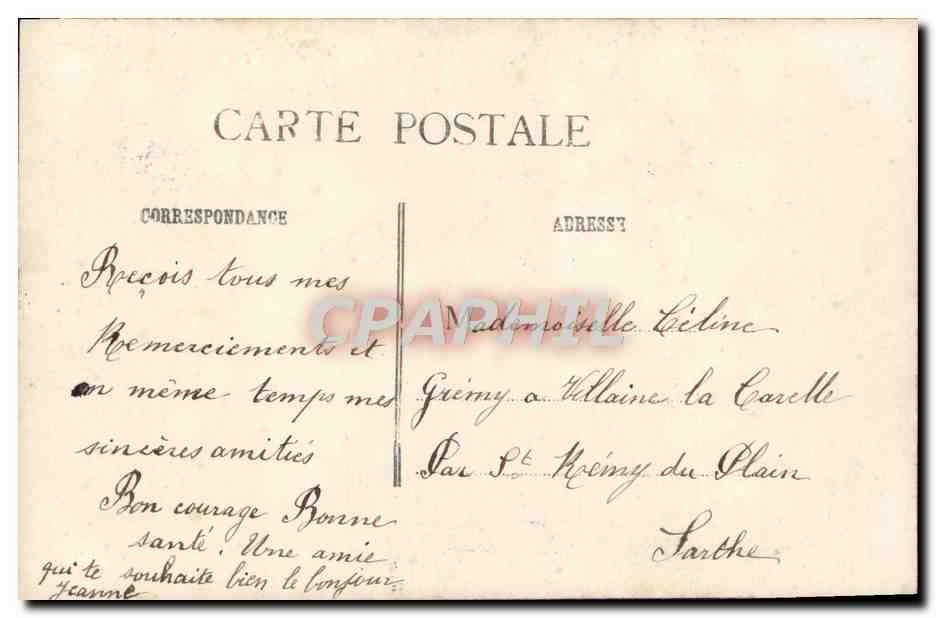 CARTE POSTALE
CORRESPONDANCE
Reçois tous mes
Remerciements et
en même temps mes
sincères amitiés
Bon courage Bonne
santé. Une amie
qui te souhaite bien le bonjour
Jeanne
ADRESSE
Mademoiselle Céline
Grémy a Villaine la Carelle
Par St Rémy du Plain
Sarthe
CPAPHIL